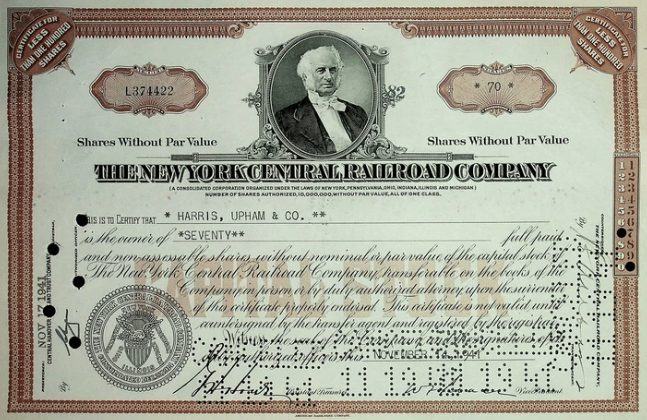 CERTIFICATE FOR
LESS
THAN ONE HUNDRED
SHARES
CERTIFICATE FOR
LESS
THAN ONE HUNDRED
SHARES
L374422
82
* 70 *
Shares Without Par Value
Shares Without Par Value
THE NEW YORK CENTRAL RAILROAD COMPANY
(A CONSOLIDATED CORPORATION ORGANIZED UNDER THE LAWS OF NEW YORK, PENNSYLVANIA, OHIO, INDIANA, ILLINOIS AND MICHIGAN)
NUMBER OF SHARES AUTHORIZED, 10,000,000, WITHOUT PAR VALUE, ALL OF ONE CLASS.
THIS IS TO CERTIFY THAT * HARRIS, UPHAM & CO. **
is the owner of *SEVENTY* full paid
and non-assessable shares without nominal or par value of the capital stock of
The New York Central Railroad Company, transferable on the books of the
Company in person or by duly authorized attorney upon the surrender
of this certificate properly endorsed. This certificate is not valid until
countersigned by the transfer agent and registered by the registrar.
Witness the seal of the Company and the signatures of
its duly authorized officers this NOVEMBER 14, 1941
NOV 17 1941
By
ILLINOIS